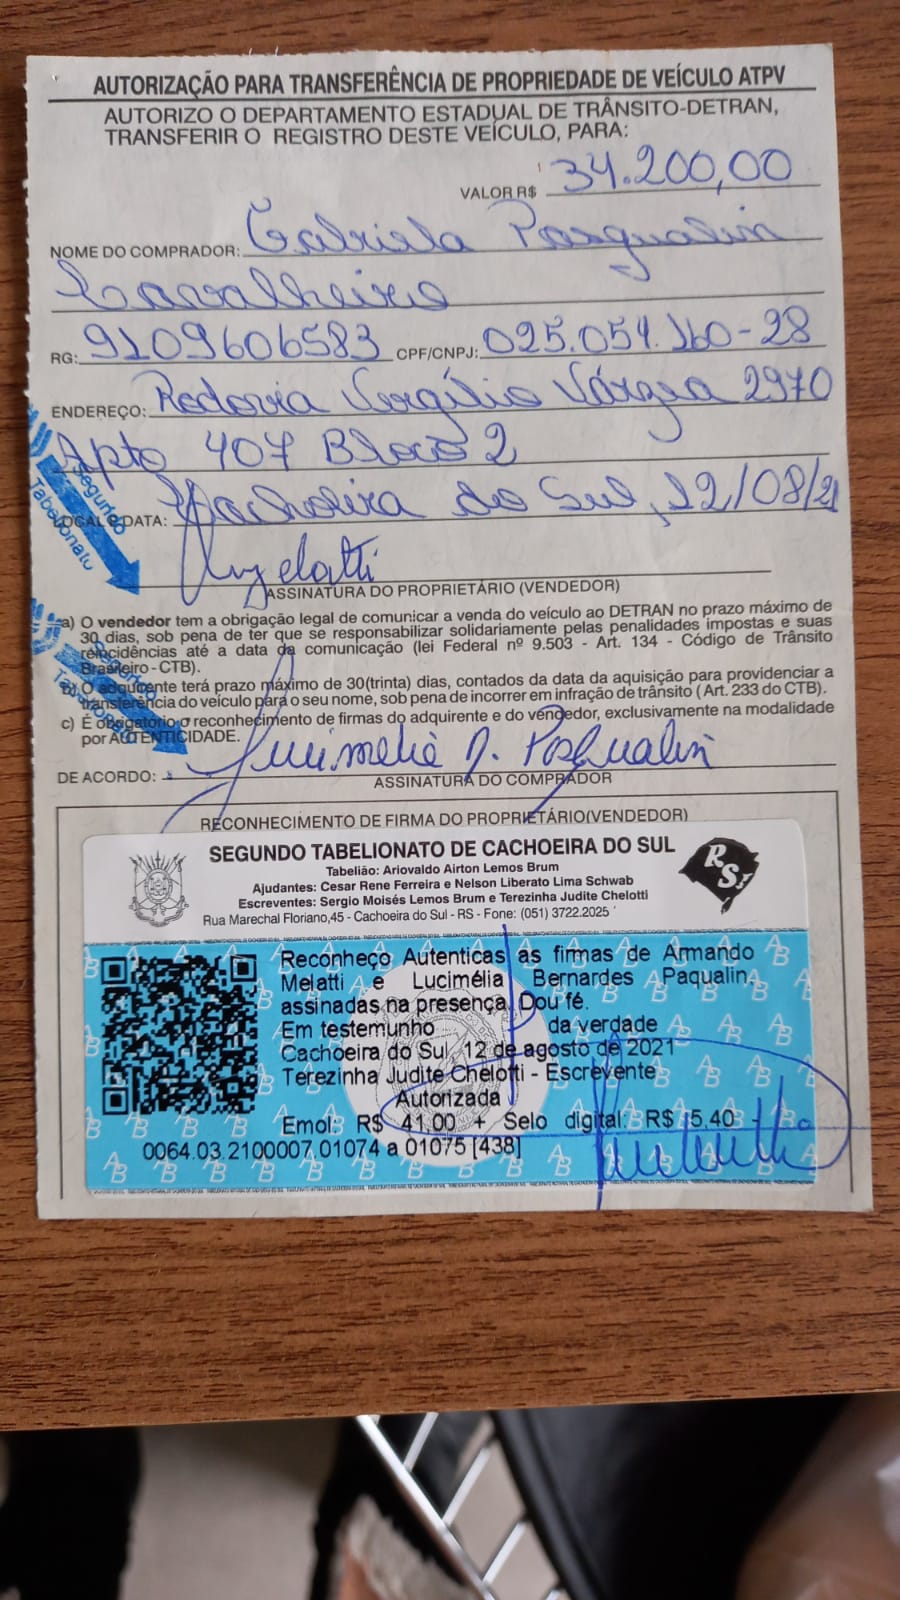 AUTORIZAÇÃO PARA TRANSFERÊNCIA DE PROPRIEDADE DE VEÍCULO ATPV
AUTORIZO O DEPARTAMENTO ESTADUAL DE TRÂNSITO-DETRAN,
TRANSFERIR O REGISTRO DESTE VEÍCULO, PARA:
VALOR R$ 34.200,00
NOME DO COMPRADOR: Gabriela Pasqualin
Cavalheiro
RG: 9109606583 CPF/CNPJ: 025.054.160-28
ENDEREÇO: Rodovia Virgílio Várzea 2970
Apto 407 Bloco 2
LOCAL E DATA: Cachoeira do Sul, 12/08/21
Segundo
Tabelionato
ASSINATURA DO PROPRIETÁRIO (VENDEDOR)
a) O vendedor tem a obrigação legal de comunicar a venda do veículo ao DETRAN no prazo máximo de
30 dias, sob pena de ter que se responsabilizar solidariamente pelas penalidades impostas e suas
reincidências até a data da comunicação (lei Federal nº 9.503 - Art. 134 - Código de Trânsito
Brasileiro - CTB).
b) O adquirente terá prazo máximo de 30(trinta) dias, contados da data da aquisição para providenciar a
transferência do veículo para o seu nome, sob pena de incorrer em infração de trânsito ( Art. 233 do CTB).
c) É obrigatório o reconhecimento de firmas do adquirente e do vendedor, exclusivamente na modalidade
por AUTENTICIDADE.
Segundo
Tabelionato
DE ACORDO: Lucimelia B. Pasqualin
ASSINATURA DO COMPRADOR
RECONHECIMENTO DE FIRMA DO PROPRIETÁRIO(VENDEDOR)
SEGUNDO TABELIONATO DE CACHOEIRA DO SUL
RS
Tabelião: Ariovaldo Airton Lemos Brum
Ajudantes: Cesar Rene Ferreira e Nelson Liberato Lima Schwab
Escreventes: Sergio Moisés Lemos Brum e Terezinha Judite Chelotti
Rua Marechal Floriano,45 - Cachoeira do Sul - RS - Fone: (051) 3722.2025
Reconheço Autenticas as firmas de Armando
Melatti e Lucimélia Bernardes Paqualin,
assinadas na presença. Dou fé.
Em testemunho da verdade
Cachoeira do Sul, 12 de agosto de 2021
Terezinha Judite Chelotti - Escrevente
Autorizada
Emol: R$ 41,00 + Selo digital: R$ 15.40
0064.03.2100007.01074 a 01075 [438]